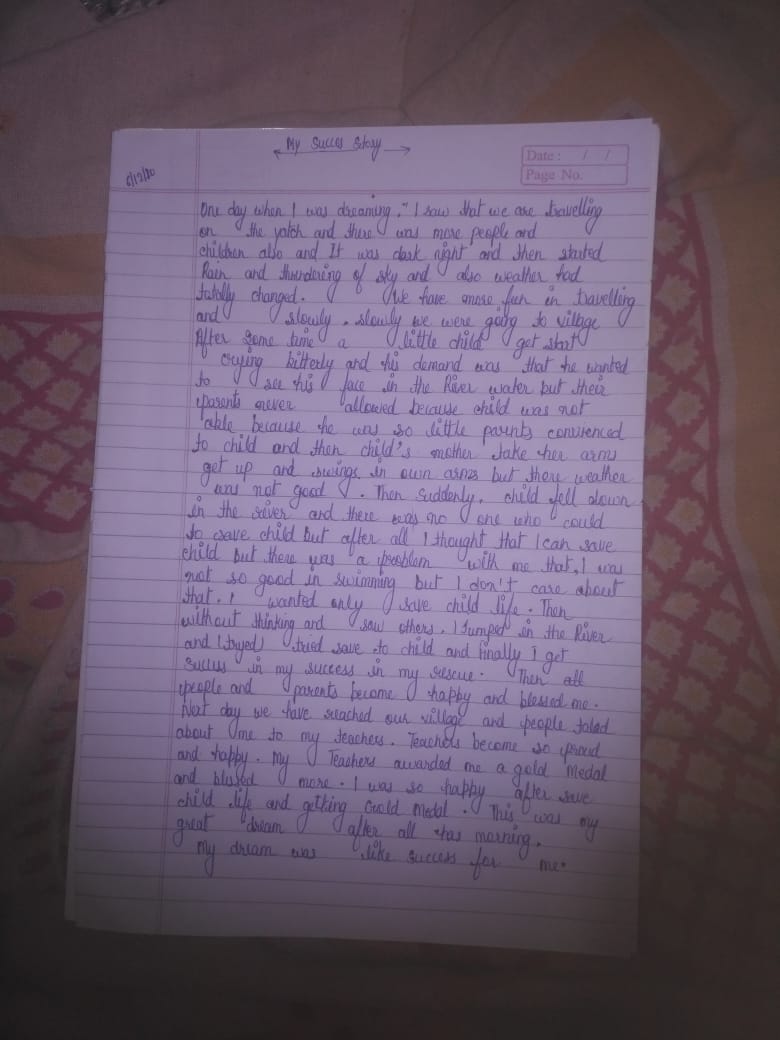 My Succes Story
Date : / /
Page No.
6/12/20
One day when I was dreaming, " I saw that we are travelling
on the yatch and there was more people and
children also and It was dark night and then started
Rain and thundering of sky and also weather had
totally changed. We have more fun in travelling
and slowly, slowly we were going to village
After some time a little child get start
crying bitterly and his demand was that he wanted
to see his face in the River water but their
parents never allowed because child was not
able because he was so little parents convienced
to child and then child's mother take her arms
get up and swings in own arms but there weather
was not good . Then suddenly, child fell down
in the river and there was no one who could
to save child but after all I thought that I can save
child but there was a problem with me that, I was
not so good in swimming but I don't care about
that. I wanted only save child life. Then
without thinking and saw others, I Jumped in the River
and (tryed) tried save to child and finally I get
Succus in my success in my rescue. Then all
people and parents become happy and blessed me.
Next day we have reached our village and people taled
about me to my teachers. Teachers become so proud
and happy. My Teachers awarded me a gold Medal
and blessed more. I was so happy after save
child life and getting Gold Medal. This was my
great dream after all has morning.
My dream was like success for me.